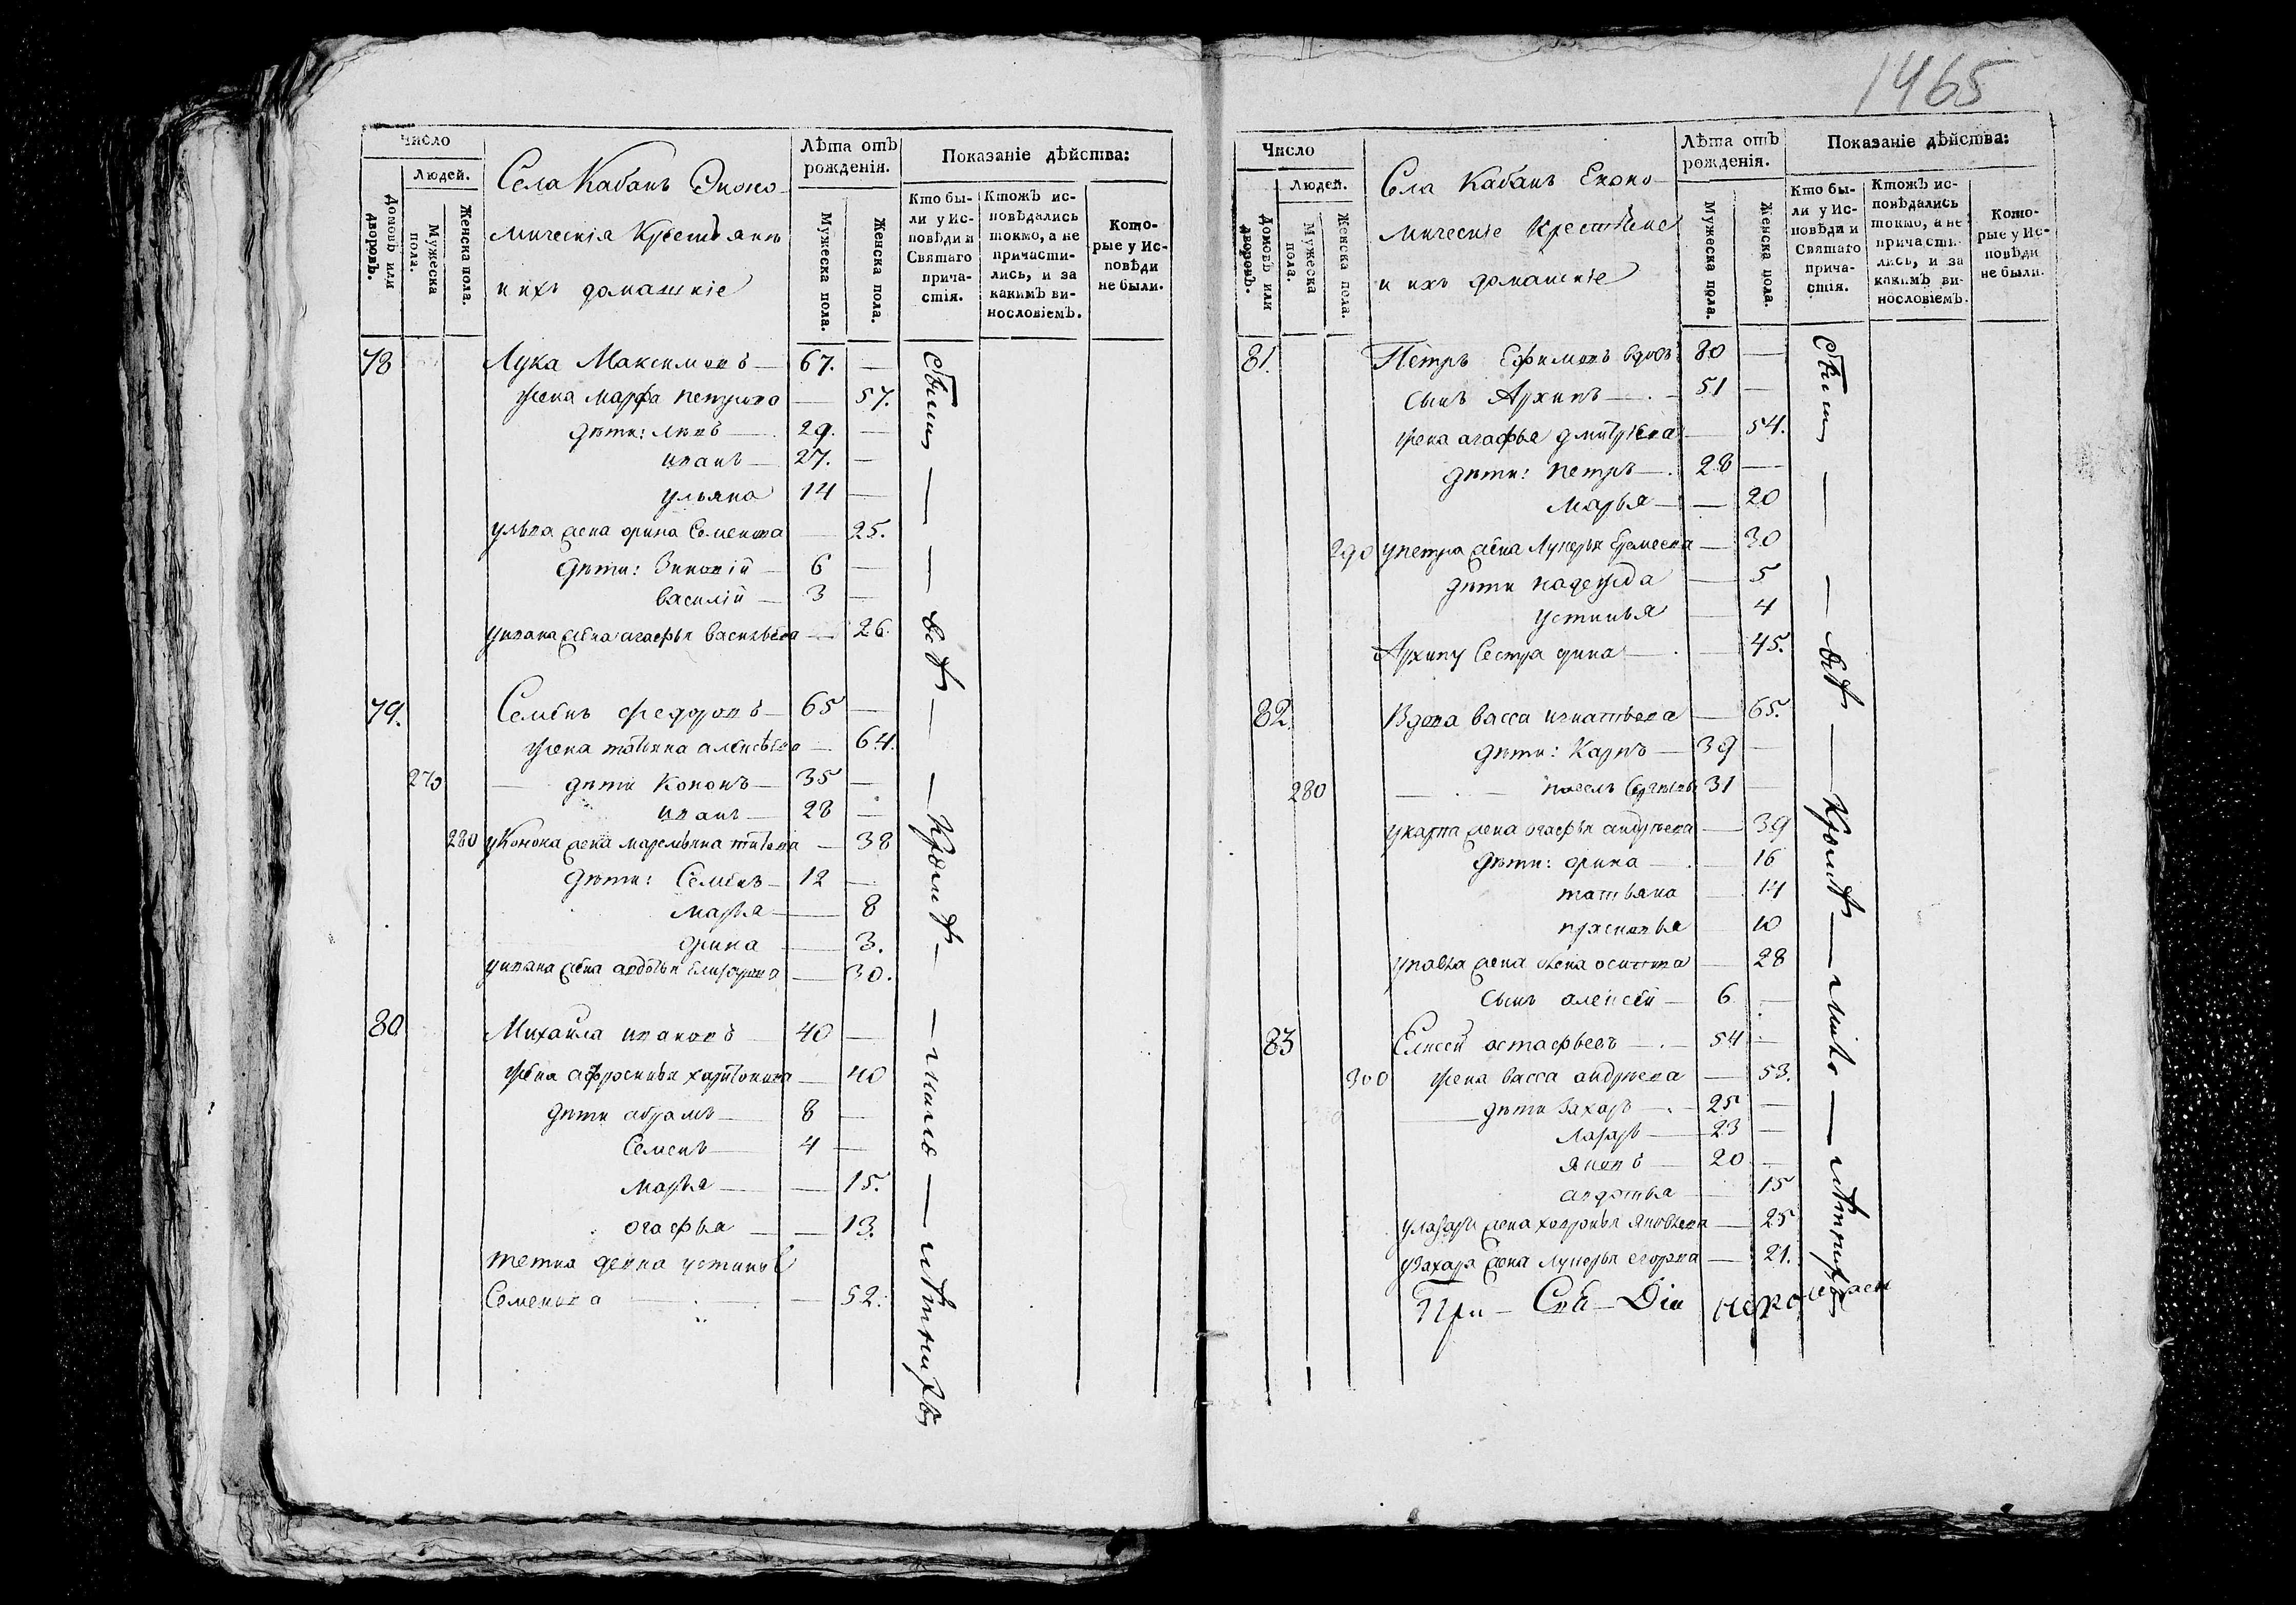 Число
Людей.
Домовъ или дворовъ.
Мужеска пола.
Женска пола.
Села Кабанъ Эконо-
мическія Крестьянъ
и ихъ домашніе
Лѣта отъ рожденія.
Мужеска пола.
Женска пола.
Показаніе дѣйства:
Кто бы-
ли у Ис-
повѣди и
Святаго
прича-
стія.
Ктожъ ис-
повѣдались
токмо, а не
причасти-
лись, и за
какимъ ви-
нословіемъ.
Кото-
рые у Ис-
повѣди
не были.
78 Лука Максимовъ — 67. —
жена марфа петрова — 57.
дѣти: левъ — 29. —
иванъ — 27. —
ульяна 14 —
у льва жена орина Семенова — 25.
дѣти: Зиновій — 6 —
василій — 3 —
у ивана жена агафья васильева — 26.
79. Семенъ федоровъ — 65 —
жена татьяна алексѣева — 64.
270 — дѣти Кононъ — 35 —
иванъ — 28 —
280 у Конона жена маремьяна титова — 38
дѣти: Семенъ — 12 —
марья — 8
орина — 3.
у ивана жена авдотья — 30.
80 Михайла ивановъ — 40 —
жена афросинья харитонова — 40
дѣти абрамъ — 8 —
Семенъ — 4 —
марья — — 15.
огафья — — 13.
тетка девка устинья
Семенова — — 52.
были — — — всѣ — — Кромѣ — — мало — лѣтнихъ
1465
Число
Людей.
Домовъ или дворовъ.
Мужеска пола.
Женска пола.
Села Кабанъ Еконо-
мическіе крестьяне
и ихъ домашніе
Лѣта отъ рожденія.
Мужеска пола.
Женска пола.
Показаніе дѣйства:
Кто бы-
ли у Ис-
повѣди и
Святаго
прича-
стія.
Ктожъ ис-
повѣдались
токмо, а не
причасти-
лись, и за
какимъ ви-
нословіемъ.
Кото-
рые у Ис-
повѣди
не были.
81. Петръ Ефимовъ вдовъ 80 —
сынъ Архипъ — 51 —
жена агафья дмитрева — 54.
дѣти: петръ — 28 —
марья — — 20
290 у петра жена Лукерья Еремеева — 30
дѣти надежда — 5
устинья — 4
Архипу Сестра орина — — 45.
82. Вдова васса игнатьева — 65.
дѣти: Карпъ — 39 —
280 — павелъ 31 —
у карпа жена огафья андреева — 39
дѣти: орина — — 16
татьяна — 14
прасковья 10
у павла жена осипова — 28
сынъ алексѣй — 6 —
83 Елисей остафьевъ — 54 —
300 жена васса андреева — 53.
дѣти Захаръ — 25 —
лазарь — 23 —
яковъ — 20 —
авдотья — 15
у лазаря жена ховронья яковлева — 25
у Захара жена лукерья егорова — 21.
были — — — всѣ — — Кромѣ — мало — лѣтнихъ